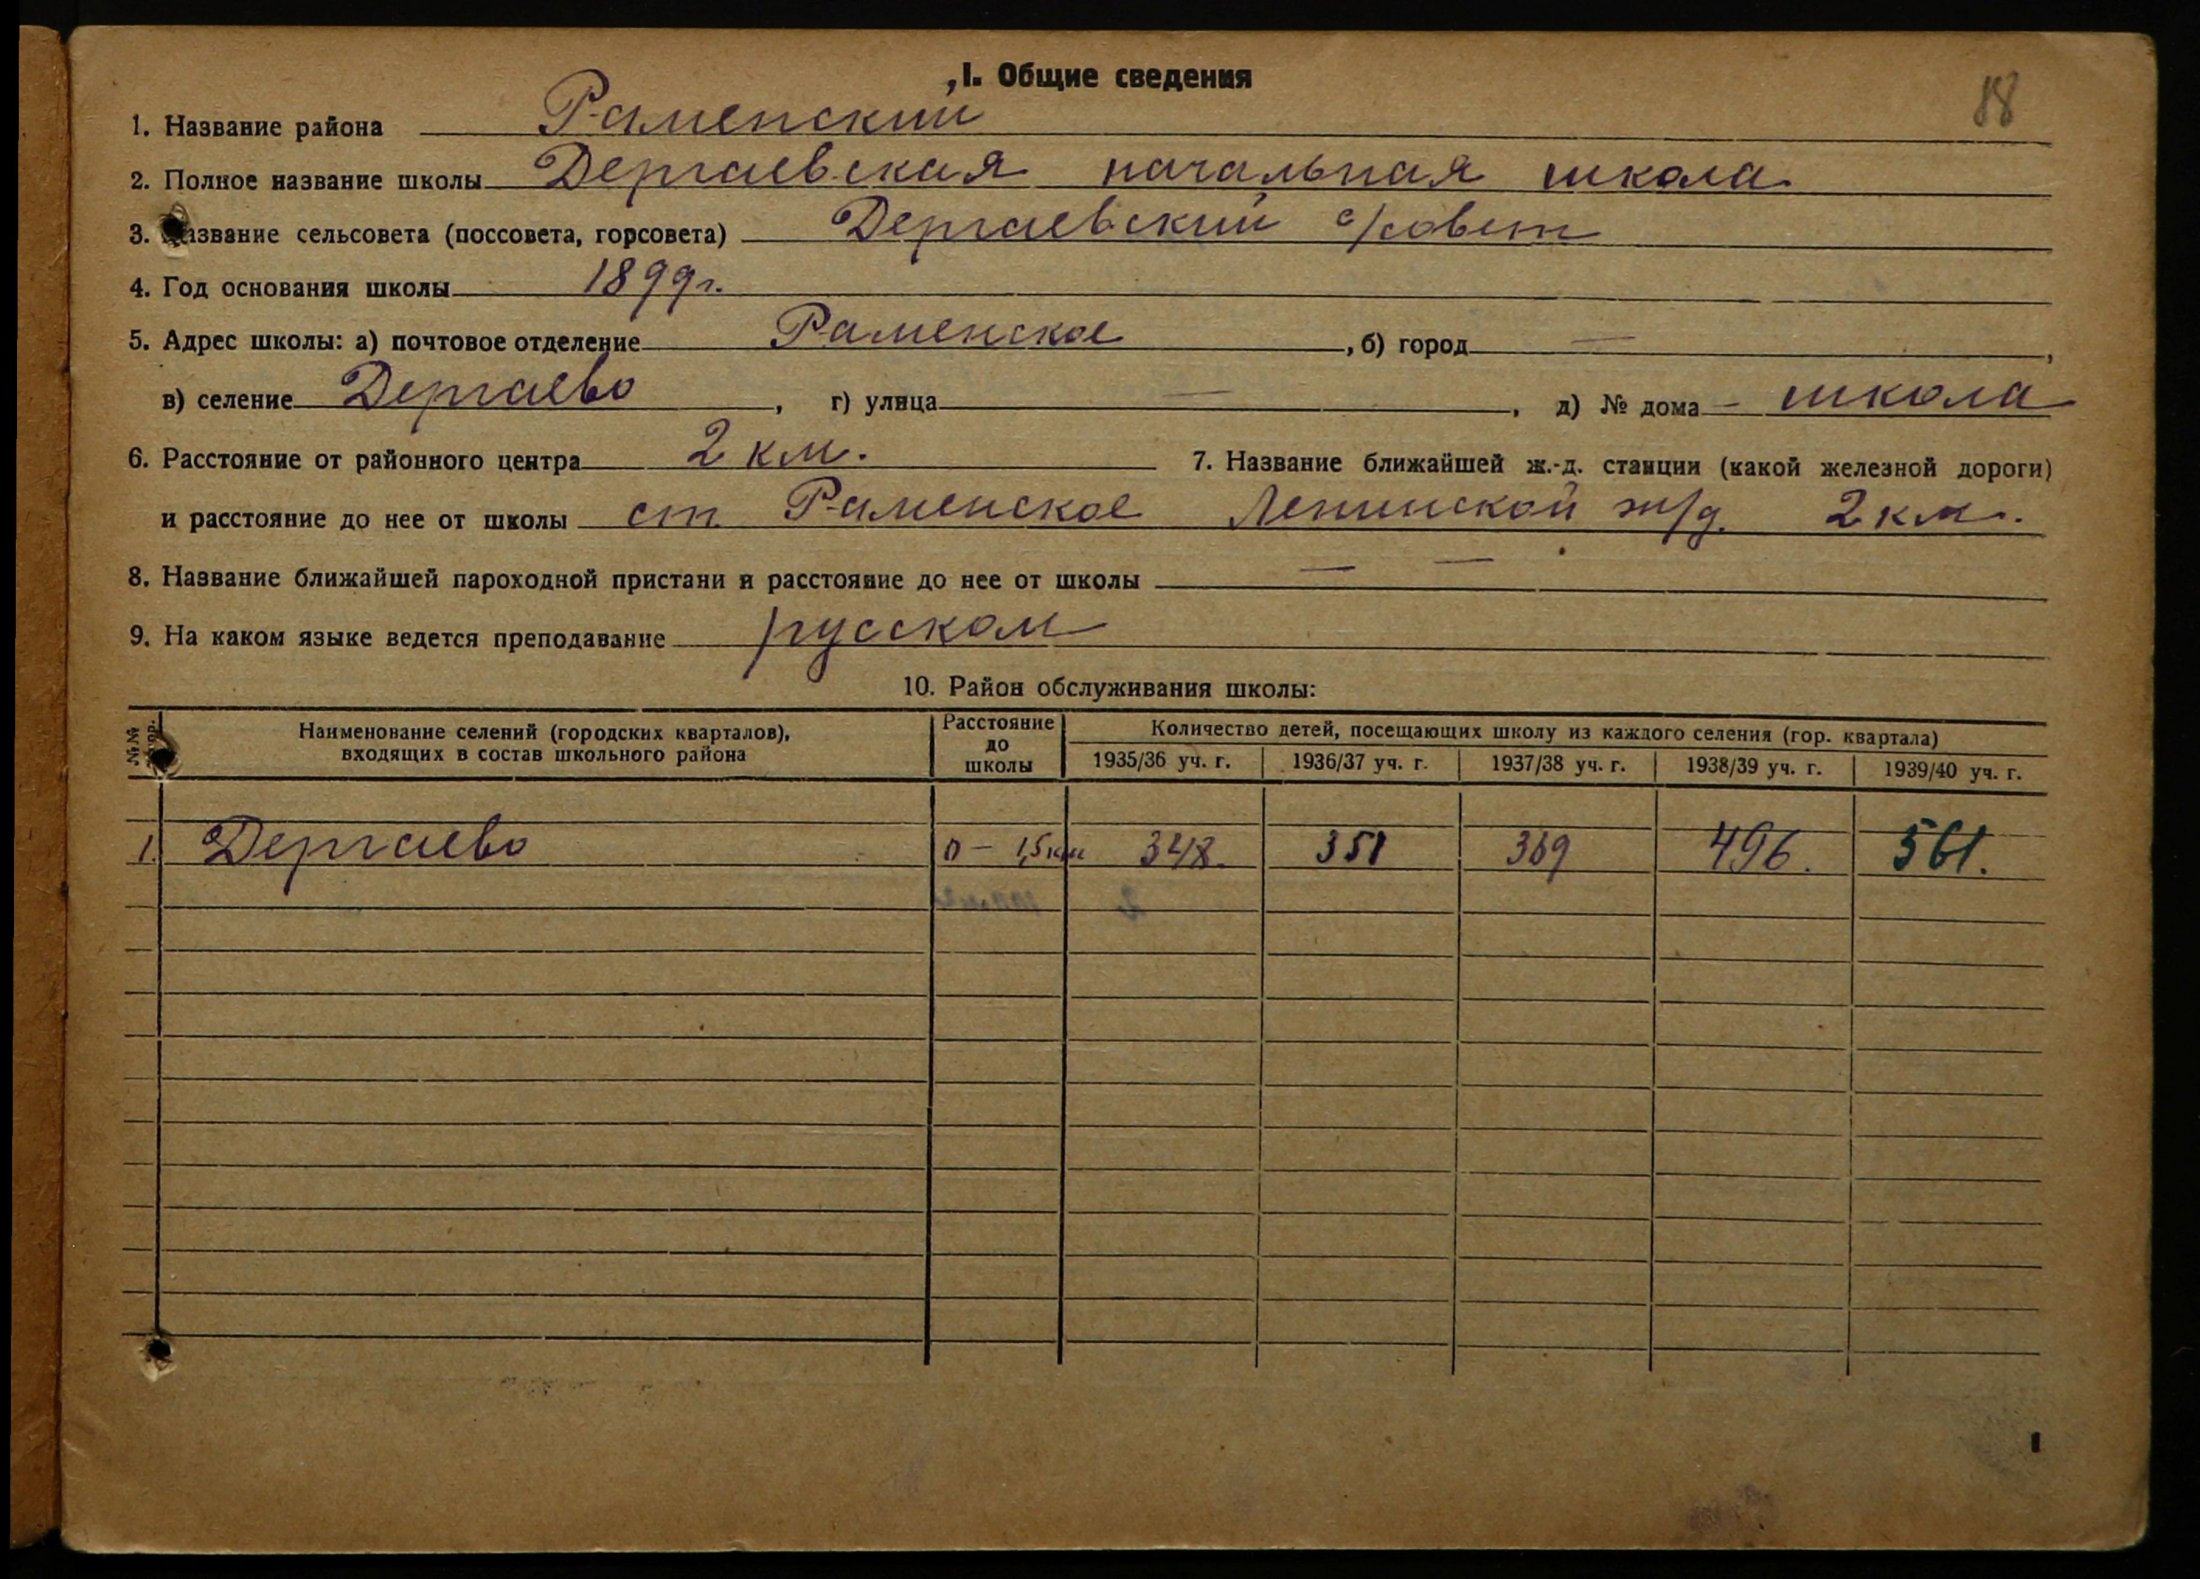 I. Общие сведения
88
1. Название района Раменский
2. Полное название школы Дергаевская начальная школа
3. Название сельсовета (поссовета, горсовета) Дергаевский с/совет
4. Год основания школы 1899 г.
5. Адрес школы: а) почтовое отделение Раменское, б) город —,
в) селение Дергаево, г) улица —, д) № дома – школа
6. Расстояние от районного центра 2 км. 7. Название ближайшей ж.-д. станции (какой железной дороги)
и расстояние до нее от школы ст. Раменское Ленинской ж/д. 2 км.
8. Название ближайшей пароходной пристани и расстояние до нее от школы — —
9. На каком языке ведется преподавание русском
10. Район обслуживания школы:
№№ Наименование селений (городских кварталов), входящих в состав школьного района Расстояние до школы Количество детей, посещающих школу из каждого селения (гор. квартала)
1935/36 уч. г. 1936/37 уч. г. 1937/38 уч. г. 1938/39 уч. г. 1939/40 уч. г.
1. Дергаево 0 – 1,5 км 348. 351 369 496. 561.
1